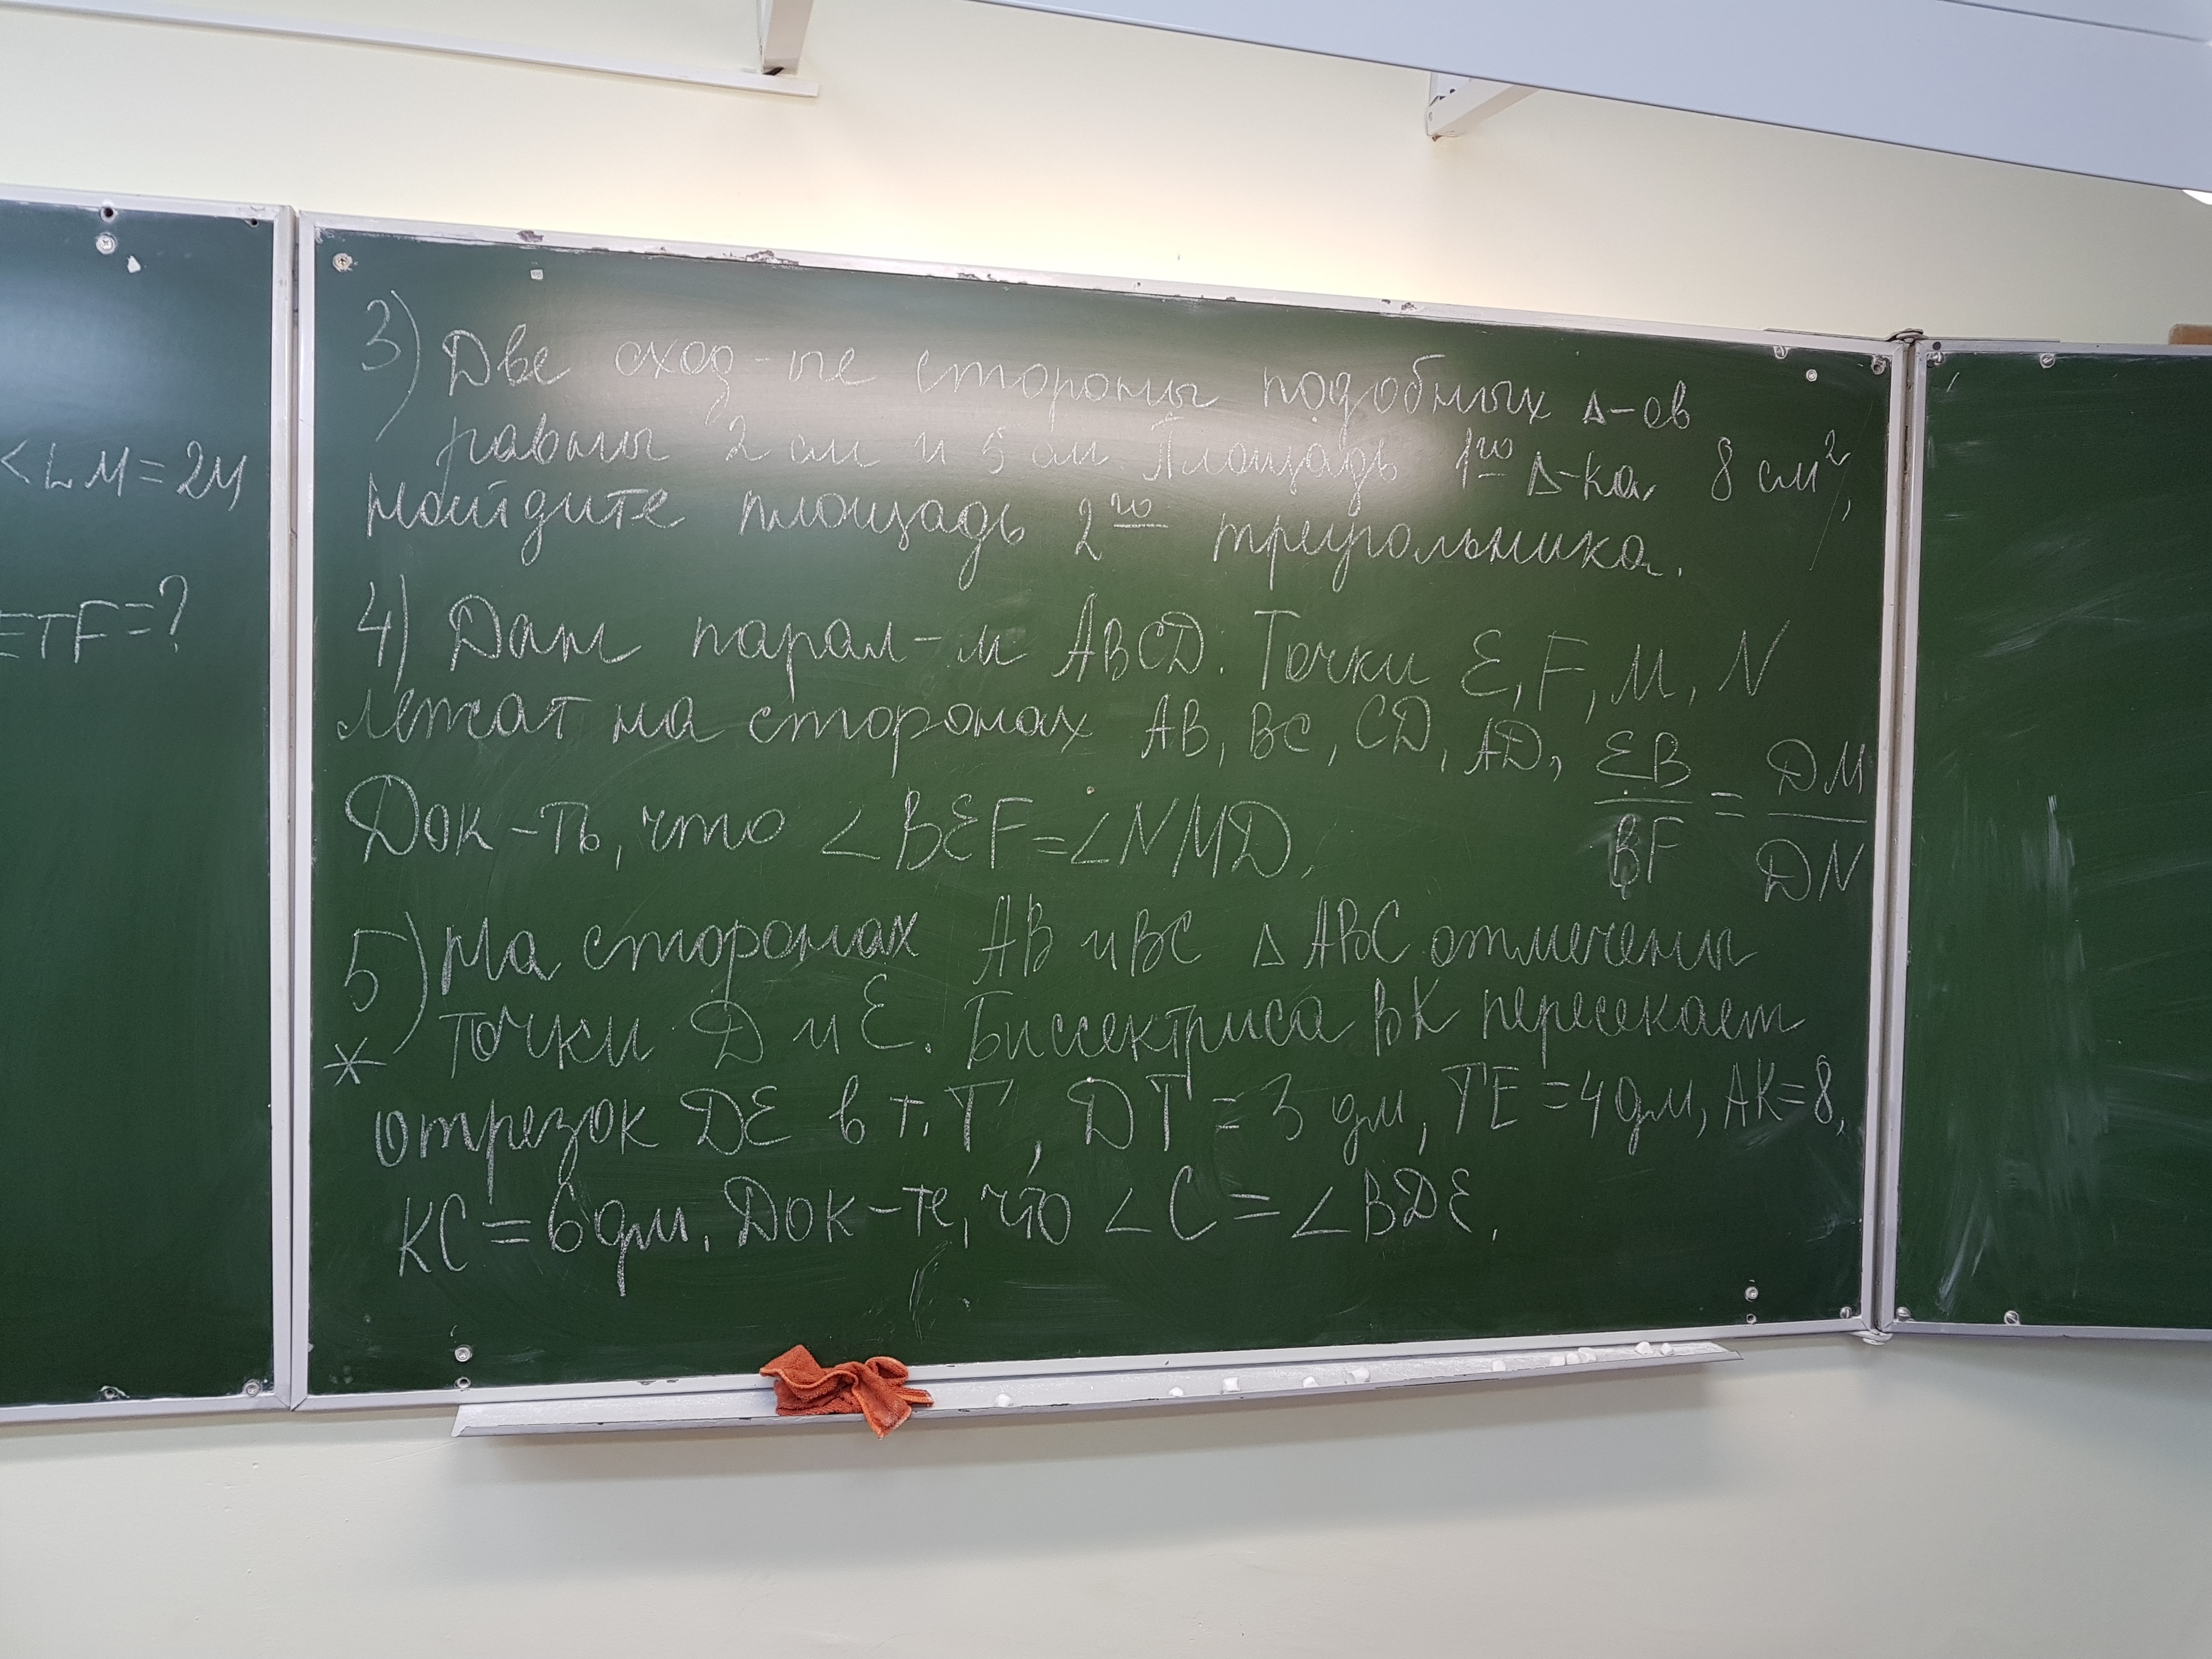 <LM=24
ETF=?
3) Две сход-ые стороны подобных Δ-ов
равны 2 см и 5 см. Площадь 1го Δ-ка 8 см²,
найдите площадь 2го треугольника.
4) Дан парал-м ABCD. Точки E, F, M, N
лежат на сторонах AB, BC, CD, AD, EB/BF = DM/DN
Док-ть, что ∠BEF=∠NMD.
5) На сторонах AB и BC Δ ABC отмечены
* точки D и E. Биссектриса BK пересекает
отрезок DE в т. T, DT = 3 дм, TE = 4 дм, AK=8,
KC=6 дм. Док-те, что ∠C = ∠BDE.